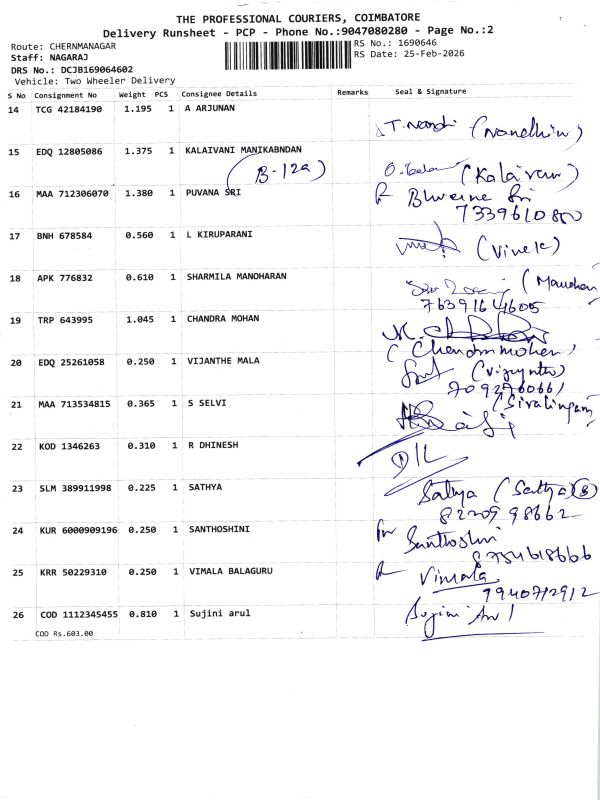 THE PROFESSIONAL COURIERS, COIMBATORE
Delivery Runsheet - PCP - Phone No.:9047080280 - Page No.:2
Route: CHERNMANAGAR
Staff: NAGARAJ
DRS No.: DCJB169064602
Vehicle: Two Wheeler Delivery
RS No.: 1690646
RS Date: 25-Feb-2026
S No Consignment No Weight PCS Consignee Details Remarks Seal & Signature
14 TCG 42184190 1.195 1 A ARJUNAN
(Nandhin)
15 EDQ 12805086 1.375 1 KALAIVANI MANIKABNDAN
B-12a (Kalaivani)
16 MAA 712306070 1.380 1 PUVANA SRI
Sri
7339610880
17 BNH 678584 0.560 1 L KIRUPARANI (Vivek)
18 APK 776832 0.610 1 SHARMILA MANOHARAN
7639164605
19 TRP 643995 1.045 1 CHANDRA MOHAN
(Chandramohan)
20 EDQ 25261058 0.250 1 VIJANTHE MALA
7092760661
21 MAA 713534815 0.365 1 S SELVI (Sivalingam)
22 KOD 1346263 0.310 1 R DHINESH
D/L
23 SLM 389911998 0.225 1 SATHYA
Sathya (Sathya)
8220998662
24 KUR 6000909196 0.250 1 SANTHOSHINI
Santhoshini
8754618666
25 KRR 50229310 0.250 1 VIMALA BALAGURU
Vimala
9940712912
26 COD 1112345455 0.810 1 Sujini arul
Sujini Arul
COD Rs.603.00